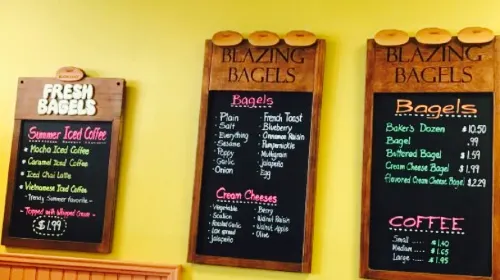 FRESH
BAGELS
Summer Iced Coffee
Mocha Iced Coffee
Caramel Iced Coffee
Iced Chai Latte
Vietnamese Iced Coffee
Trendy Summer favorite
Topped with Whipped Cream
$1.99
BLAZING
BAGELS
Bagels
Plain
Salt
Everything
Sesame
Poppy
Garlic
Onion
French Toast
Blueberry
Cinnamon Raisin
Pumpernickle
Multigrain
Jalapeño
Egg
Cream Cheeses
Vegetable
Scallion
Roasted Garlic
Low spread
Jalapeño
Berry
Walnut Raisin
Walnut Apple
Olive
BLAZING
BAGELS
Bagels
Baker's Dozen $10.50
Bagel .99
Buttered Bagel $1.59
Cream Cheese Bagel $1.99
Flavored Cream Cheese Bagel $2.29
COFFEE
Small $1.40
Medium $1.65
Large $1.95